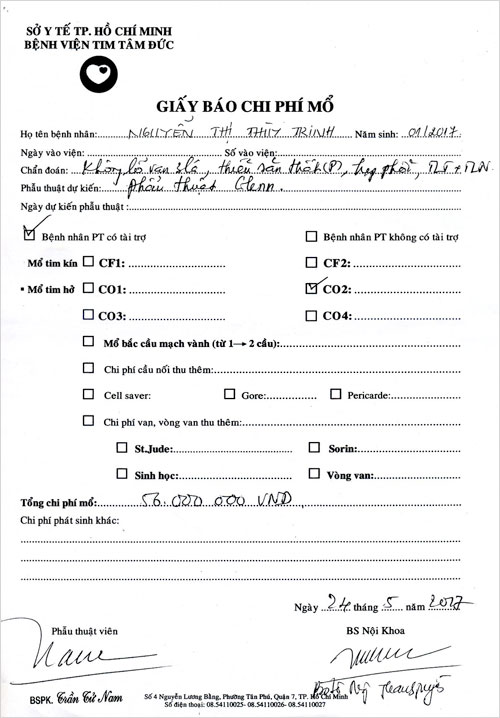 SỞ Y TẾ TP. HỒ CHÍ MINH
BỆNH VIỆN TIM TÂM ĐỨC
GIẤY BÁO CHI PHÍ MỔ
Họ tên bệnh nhân: NGUYỄN THỊ THÙY TRINH Năm sinh: 01/2017.
Ngày vào viện: Số vào viện:
Chẩn đoán: Không lỗ van 3 lá, thiểu sản thất (P), hẹp phổi, TLT + TLN.
Phẫu thuật dự kiến: phẫu thuật Glenn.
Ngày dự kiến phẫu thuật:
Bệnh nhân PT có tài trợ Bệnh nhân PT không có tài trợ
Mổ tim kín CF1: CF2:
Mổ tim hở CO1: CO2:
CO3: CO4:
Mổ bắc cầu mạch vành (từ 1→ 2 cầu):
Chi phí cầu nối thu thêm:
Cell saver: Gore: Pericarde:
Chi phí van, vòng van thu thêm:
St.Jude: Sorin:
Sinh học: Vòng van:
Tổng chi phí mổ: 56.000 000 VND
Chi phí phát sinh khác:
Ngày 24 tháng 5 năm 2017
Phẫu thuật viên BS Nội Khoa
BSPK. Trần Tử Nam
Số 4 Nguyễn Lương Bằng, Phường Tân Phú, Quận 7, TP. Hồ Chí Minh
Số điện thoại: 08.54110025- 08.54110026 - 08.54110027